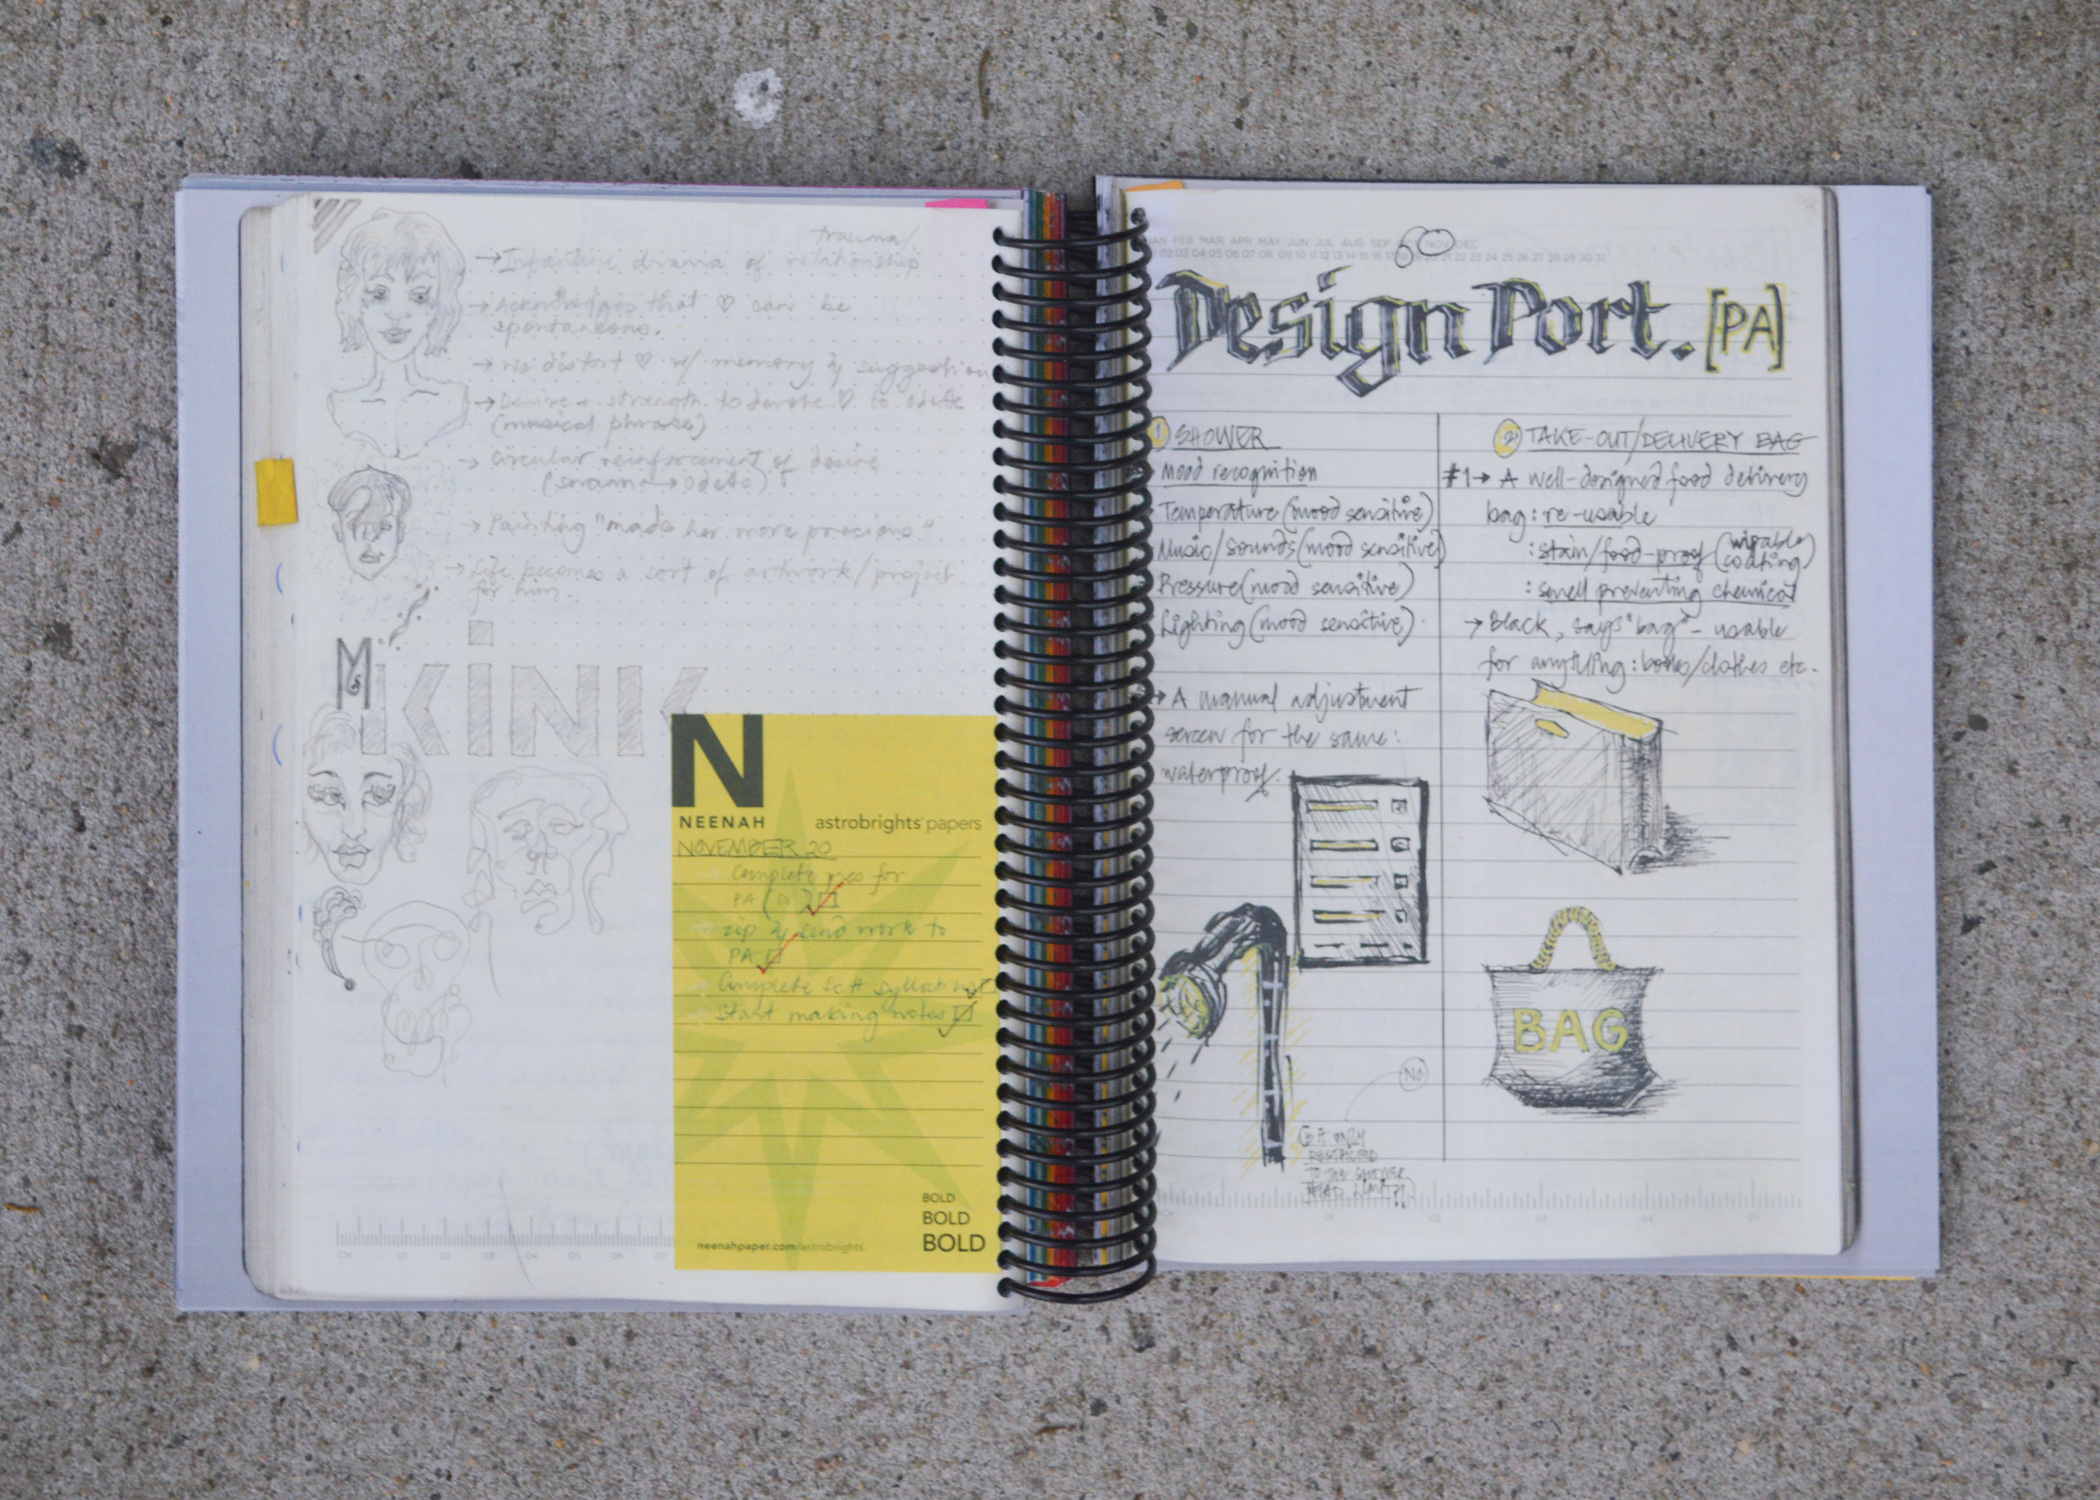 trauma/
→ Infantine drama of relationship
→ Acknowledges that ♡ can be
spontaneous.
→ We distort ♡ w/ memory & suggestion
→ Desire + strength to devote ♡ to odette
(musical phrase)
→ Circular reinforcement of desire
(swann → odette)
→ Painting "made her more precious"
→ Life becomes a sort of artwork/project
for him.
KiNK
N
NEENAH
astrobrights papers
NOVEMBER 20
Complete for
PA
zip & send work to
PA
Complete Sc H syllab
Start making notes
BOLD
BOLD
BOLD
neenahpaper.com/astrobrights
CM 01 02 03 04 05 06 07
JAN FEB MAR APR MAY JUN JUL AUG SEP OCT NOV DEC
01 02 03 04 05 06 07 08 09 10 11 12 13 14 15 16 17 18 19 20 21 22 23 24 25 26 27 28 29 30 31
Design Port. [PA]
① SHOWER
Mood recognition
Temperature (mood sensitive)
Music/Sounds (mood sensitive)
Pressure (mood sensitive)
Lighting (mood sensitive)
→ A manual adjustment
screen for the same:
waterproof.
No
Is it only
restricted
to the shower
head limit?!
② TAKE-OUT/DELIVERY BAG
#1 → A well-designed food delivery
bag: re-usable
: stain/food-proof (wipable coating)
: smell preventing chemical
→ Black, says "bag" - usable
for anything: books/clothes etc.
BAG
CM 01 02 03 04 05